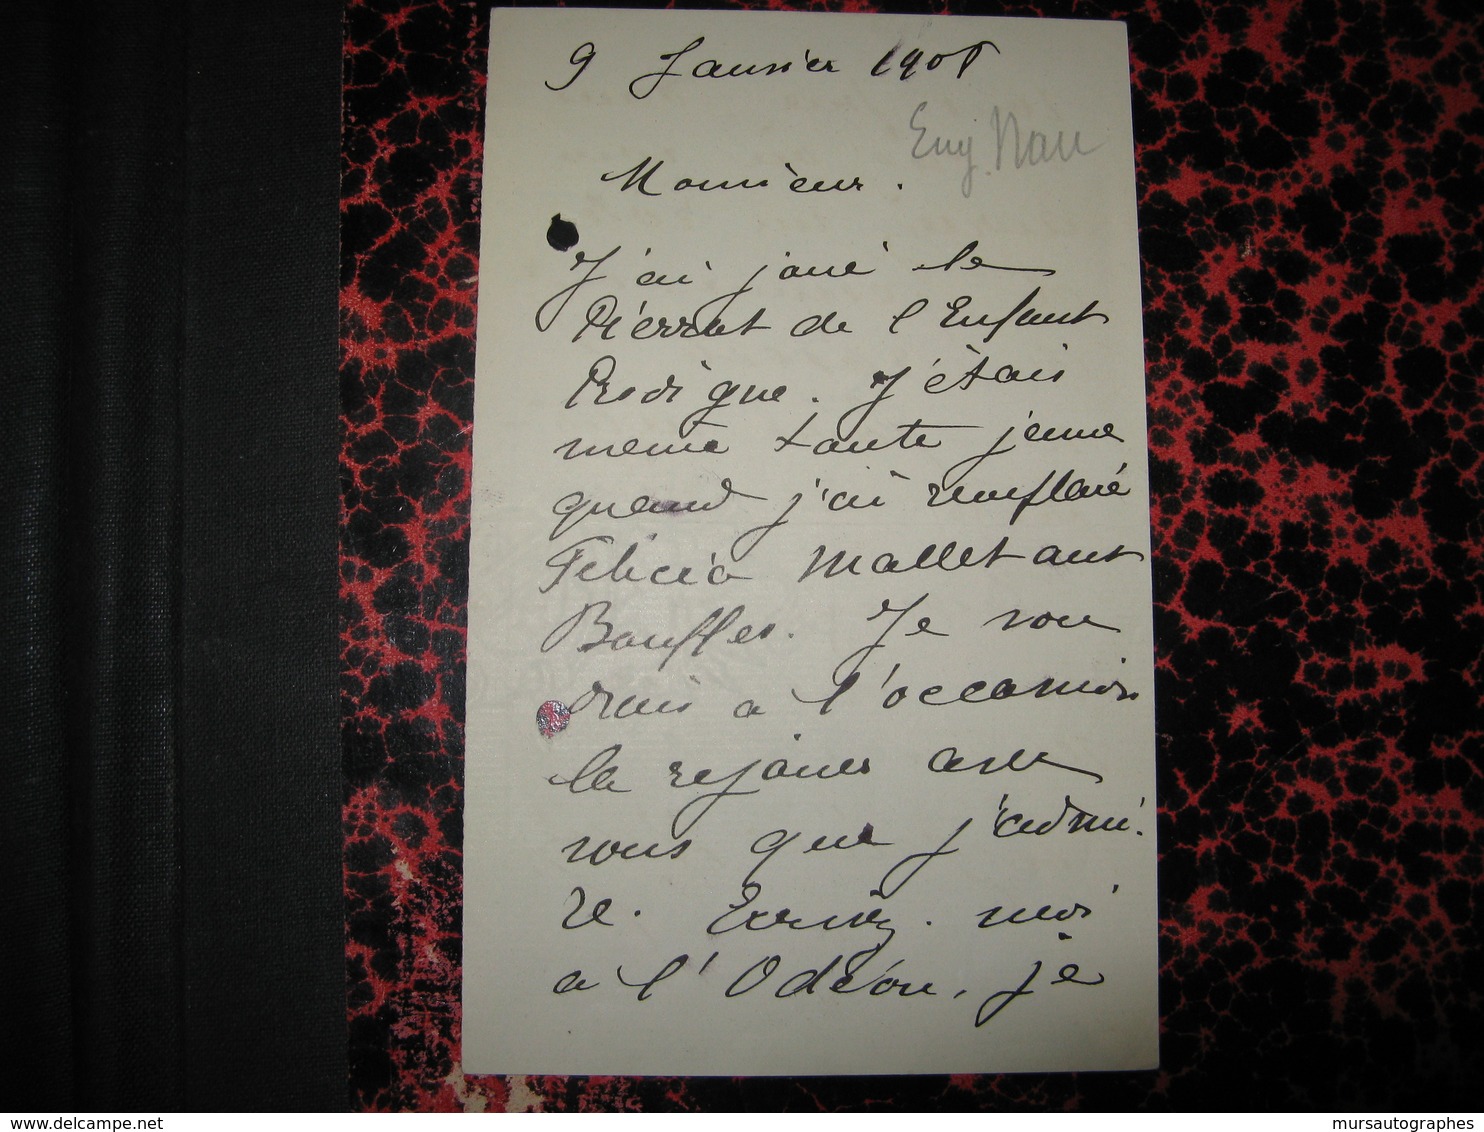 9 Janvier 1901
Eug. Nau
Monsieur.
J'ai joué le
Pierrot de l'Enfant
Prodigue. J'étais
meme toute jeune
quand j'ai remplacé
Felicia Mallet aux
Bouffes. Je vou
drais a l'occasion
le rejouer avec
vous que j'admi.
re. Ecrivez. moi
a l'Odéon. je
delcampe.net
mursautographes